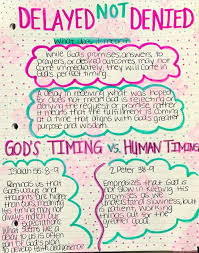 DELAYED NOT DENIED
What does it mean?
While God's promises, answers to
prayers, or desired outcomes may not
come immediately, they will come in
God's perfect timing.
A delay in receiving what was hoped
for does not mean God is rejecting or
denying the request or promise, rather
it means that the fulfillment is coming
at a time that aligns with God's greater
purpose and wisdom.
GOD'S TIMING VS. HUMAN TIMING
Isaiah 55:8-9
2 Peter 3:8-9
Reminds us that
God's ways and
thoughts are higher
than ours, meaning
His timing may not
always match our
expectations.
What seems like a
delay to us is often
part of God's plan
to develop
Emphasizes that God is
not slow in keeping His
promises as we
understand slowness, but
is patient, working
things out for the
good